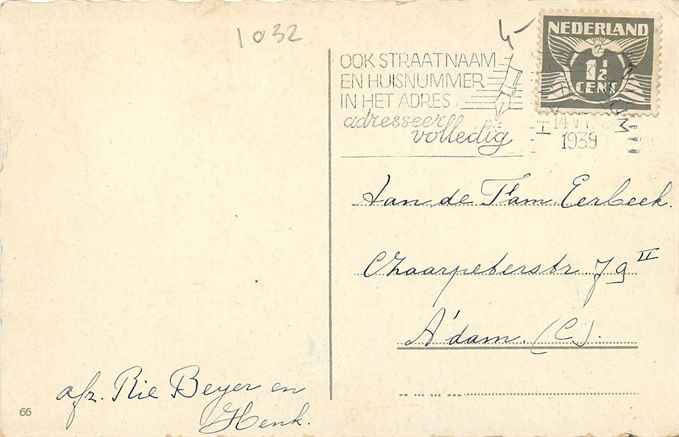 1032
OOK STRAATNAAM
EN HUISNUMMER
IN HET ADRES
adresseer
volledig
NEDERLAND
1½
CENT
1939
Aan de Fam. Eerbeek.
Czaarpeterstr. 79 II
A'dam. (C).
afz. Rie Beyer en
Henk.
66